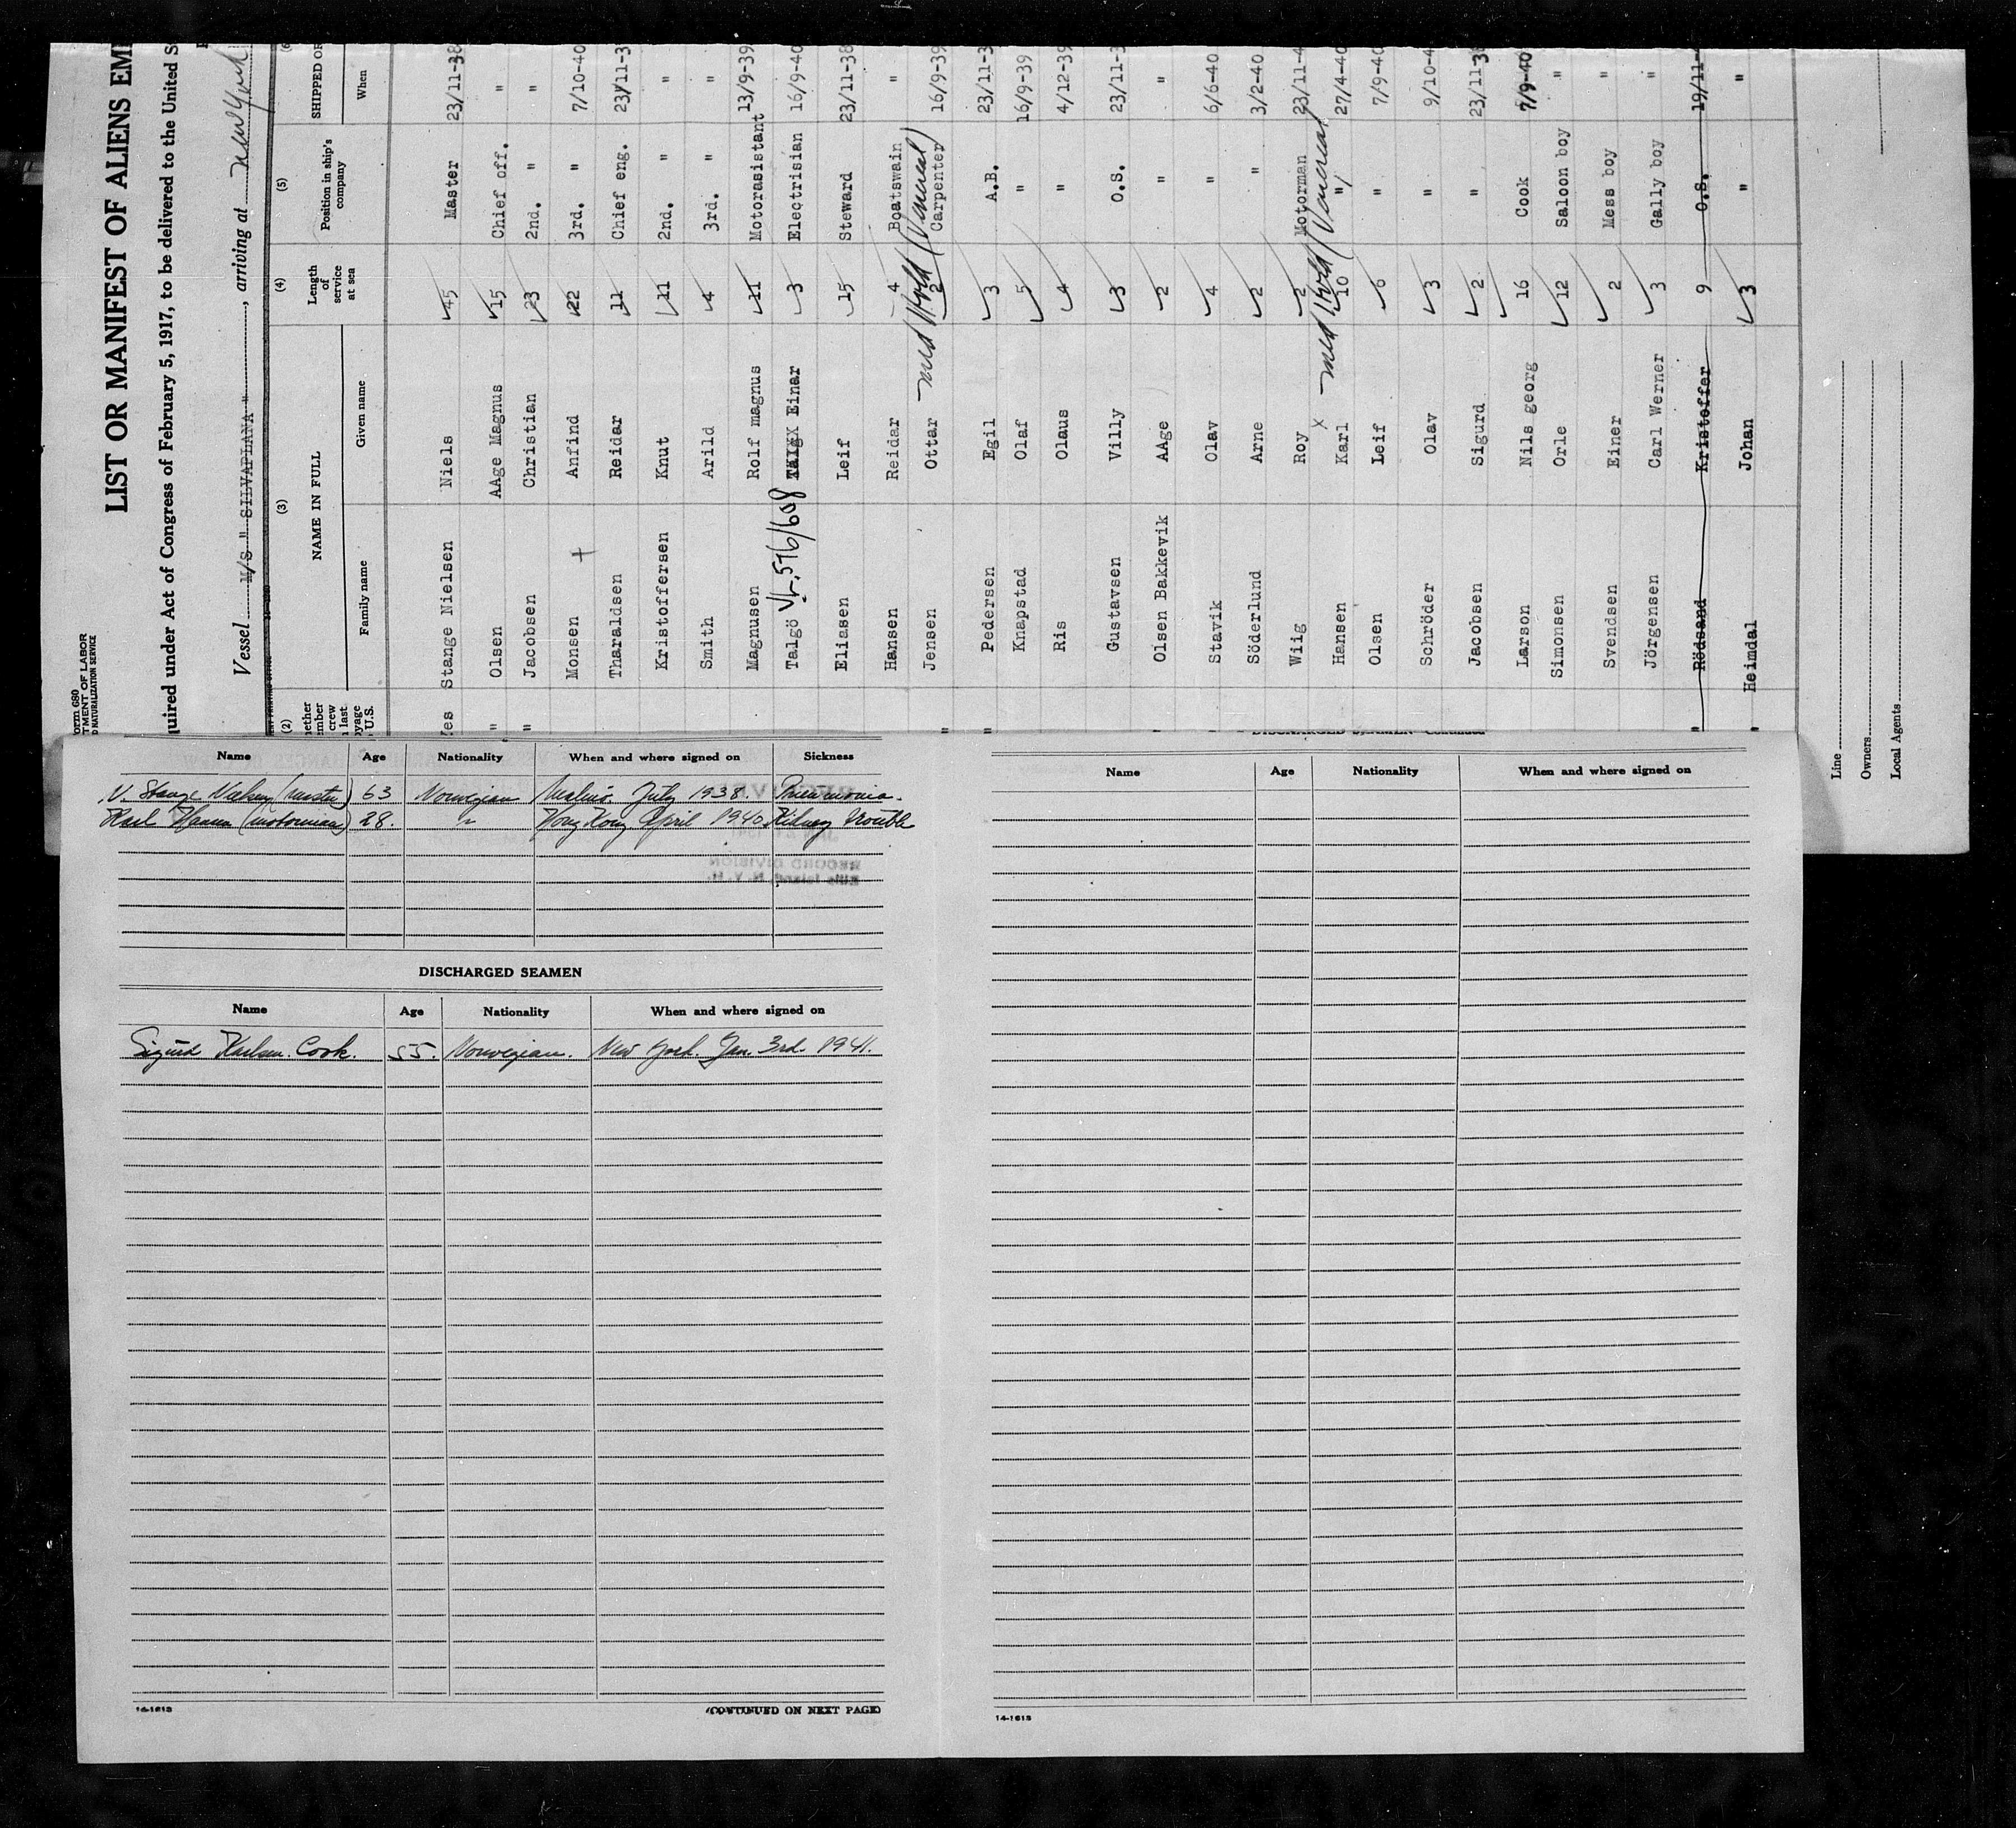 Form 680
TMENT OF LABOR
D NATURALIZATION SERVICE
LIST OR MANIFEST OF ALIENS EM
quired under Act of Congress of February 5, 1917, to be delivered to the United S
Vessel M/S " SILVAPLANA ", arriving at New York
(2) (3) (4) (5) (6
ether mber crew last yage U.S. NAME IN FULL Length of service at sea Position in ship's company SHIPPED OR
Family name Given name When
Yes Stange Nielsen Niels 45 Master 23/11-38
" Olsen AAge Magnus 15 Chief off. "
" Jacobsen Christian 23 2nd. " "
Monsen + Anfind 22 3rd. " 7/10-40
Tharaldsen Reidar 11 Chief eng. 23/11-3
Kristoffersen Knut 11 2nd. " "
Smith Arild 4 3rd. " "
Magnusen Rolf magnus 11 Motorasistant 13/9-39
Talgö Einar 3 Electrisian 16/9-40
Eliasen Leif 15 Steward 23/11-38
Hansen Reidar 4 Boatswain "
med Hold (Venereal)
" Jensen Ottar 2 Carpenter 16/9-39
" Pedersen Egil 3 A.B. 23/11-3
Knapstad Olaf 5 " 16/9-39
Ris Olaus 4 " 4/12-39
Gustavsen Villy 3 O.S. 23/11-3
Olsen Bakkevik AAge 2 " "
Stavik Olav 4 " 6/6-40
Söderlund Arne 2 " 3/2-40
Wiig Roy 2 Motorman 23/11-4
X med Hold (Venereal
Hansen Karl 10 " 27/4-40
Olsen Leif 6 " 7/9-40
Schröder Olav 3 " 9/10-4
Jacobsen Sigurd 2 " 23/11-38
Larson Nils georg 16 Cook 7/9-40
Simonsen Orle 12 Saloon boy "
Svendsen Einer 2 Mess boy "
Jörgensen Carl Werner 3 Gally boy "
" Rödsand Kristoffer 9 O.S. 19/11-4
" Heimdal Johan 3 " "
Line
Owners
Local Agents
Name Age Nationality When and where signed on Sickness
N. Stange Nielsen (master) 63 Norwegian July 1938. Pneumonia.
Karl Hansen (motorman) 28. " Hong Kong April 1940 Kidney trouble
DISCHARGED SEAMEN
Name Age Nationality When and where signed on
Sigurd Karlsen. Cook. 55. Norwegian. New York. Jan. 3rd. 1941.
14-1613 (CONTINUED ON NEXT PAGE)
DISCHARGED SEAMEN—Continued
Name Age Nationality When and where signed on
14-1613